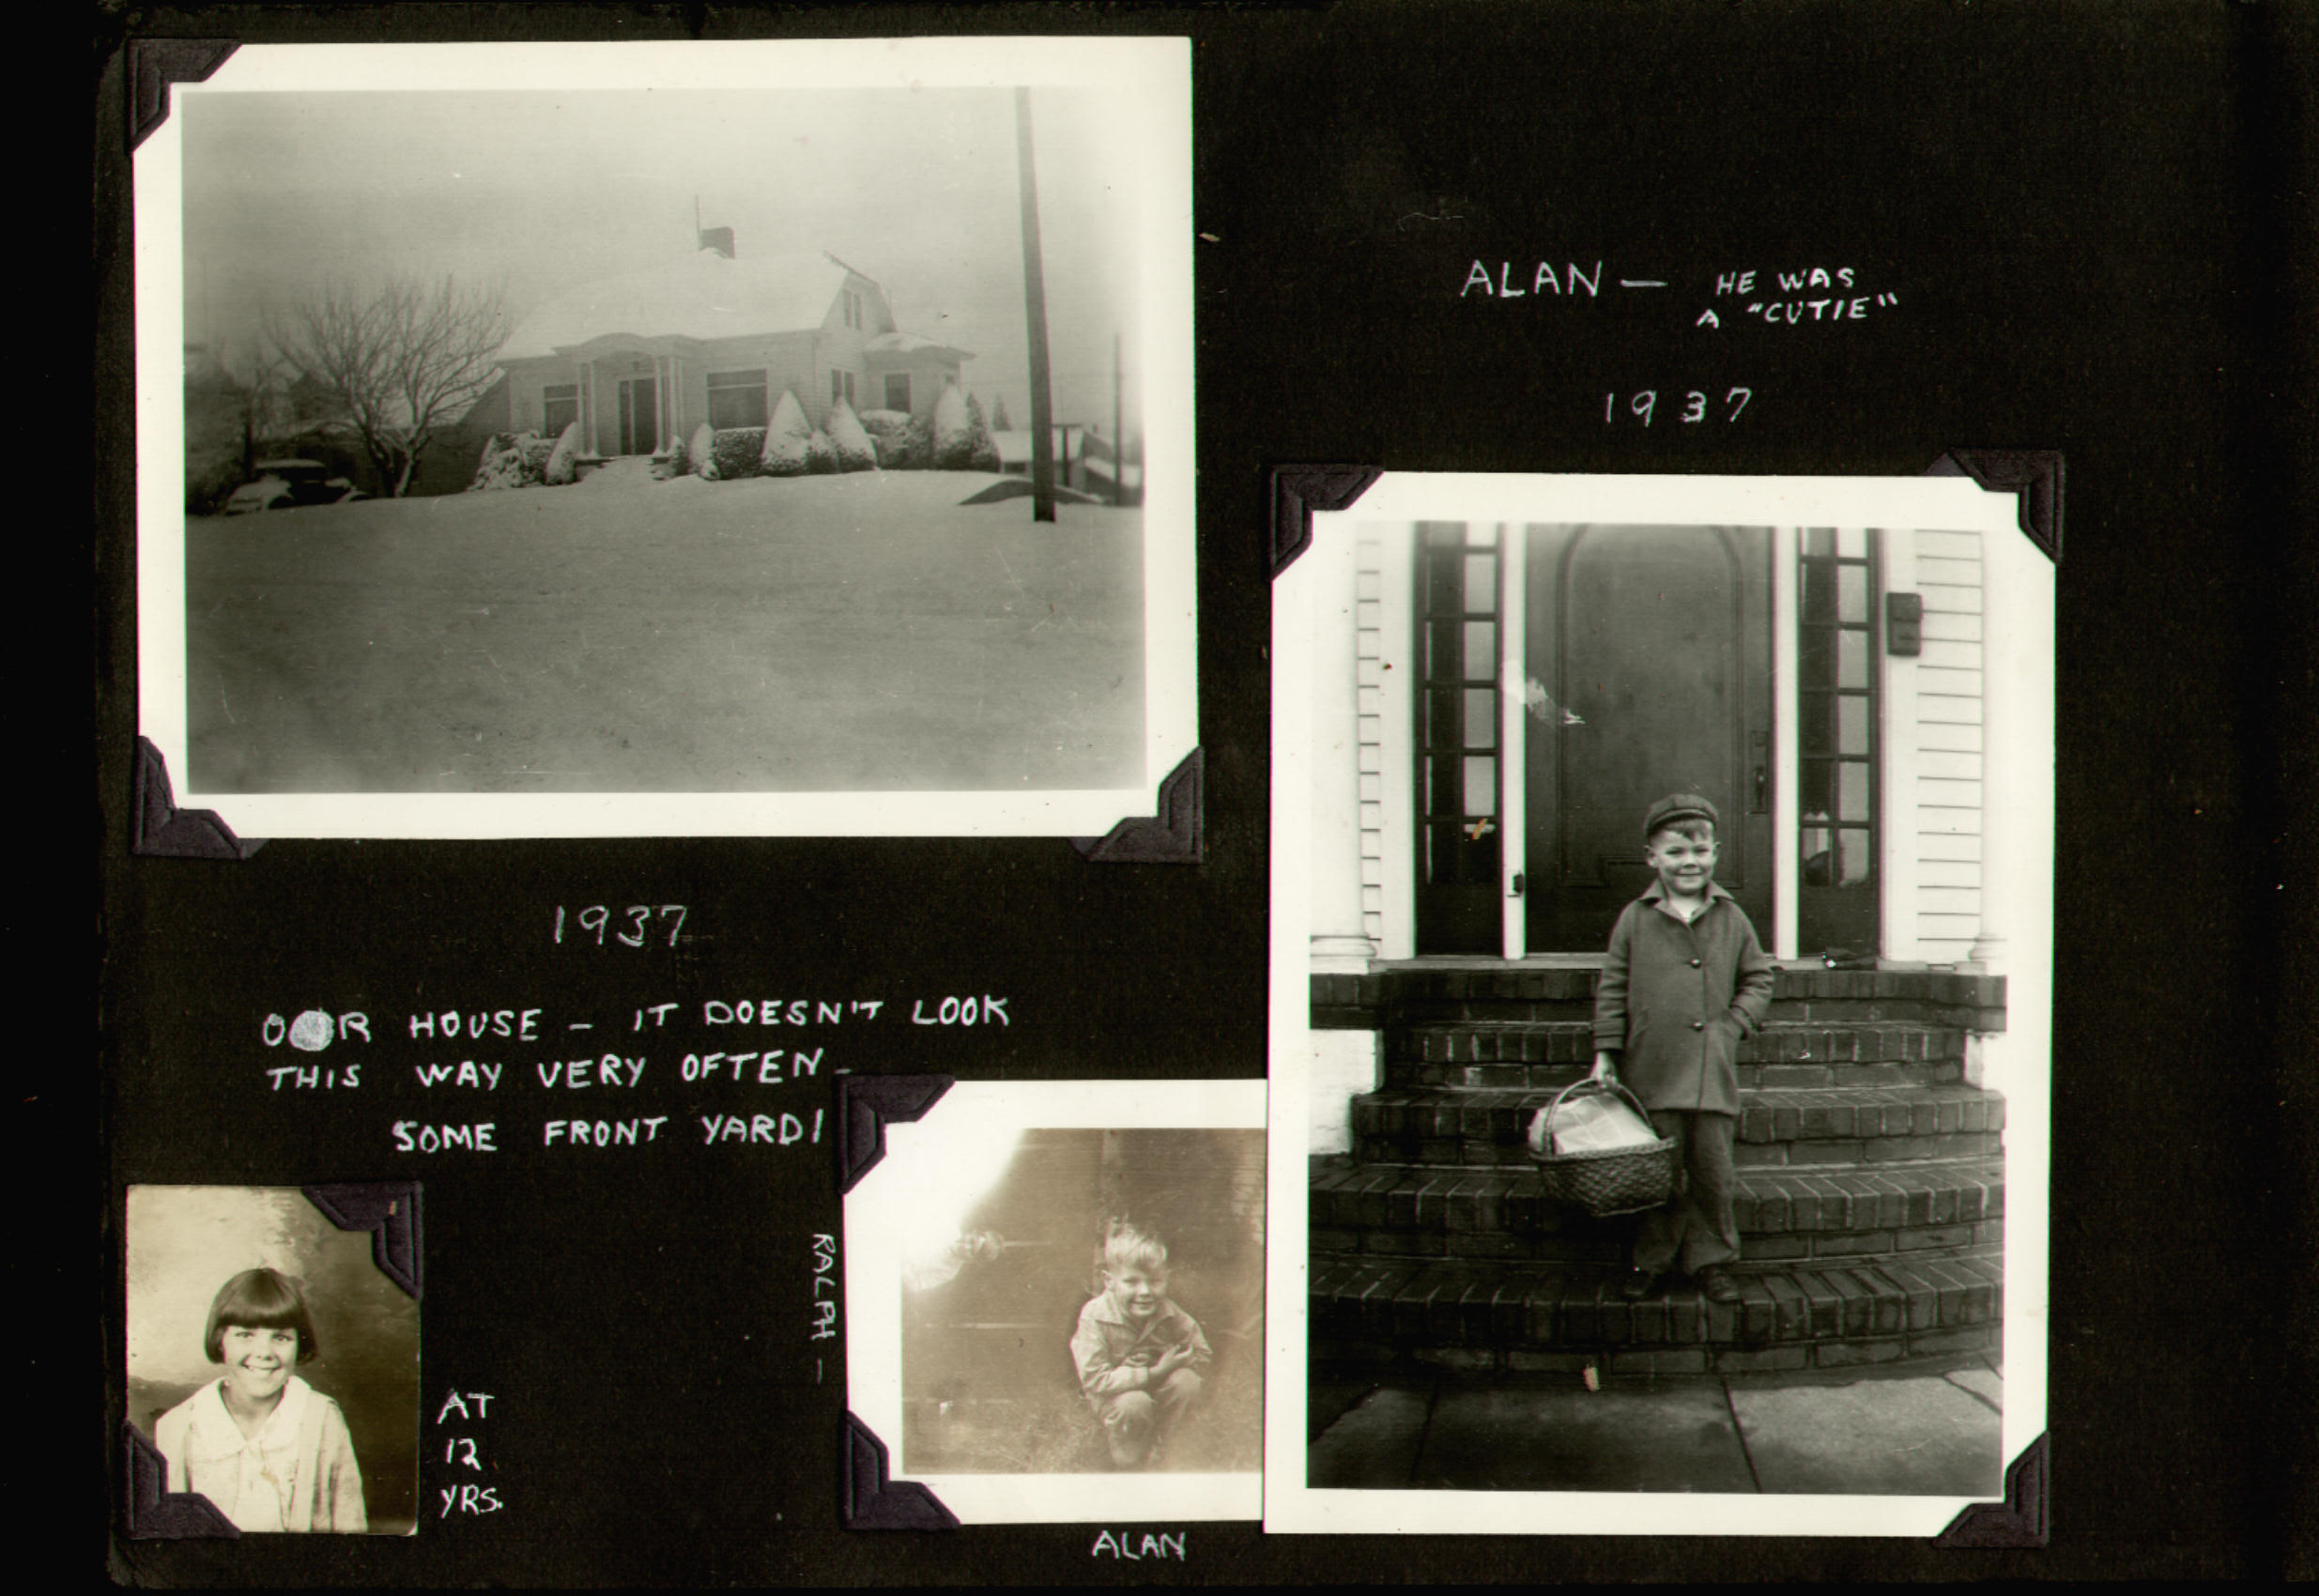 ALAN — HE WAS
A "CUTIE"
1937
1937
OUR HOUSE – IT DOESN'T LOOK
THIS WAY VERY OFTEN–
SOME FRONT YARD!
RALPH –
AT
12
YRS.
ALAN